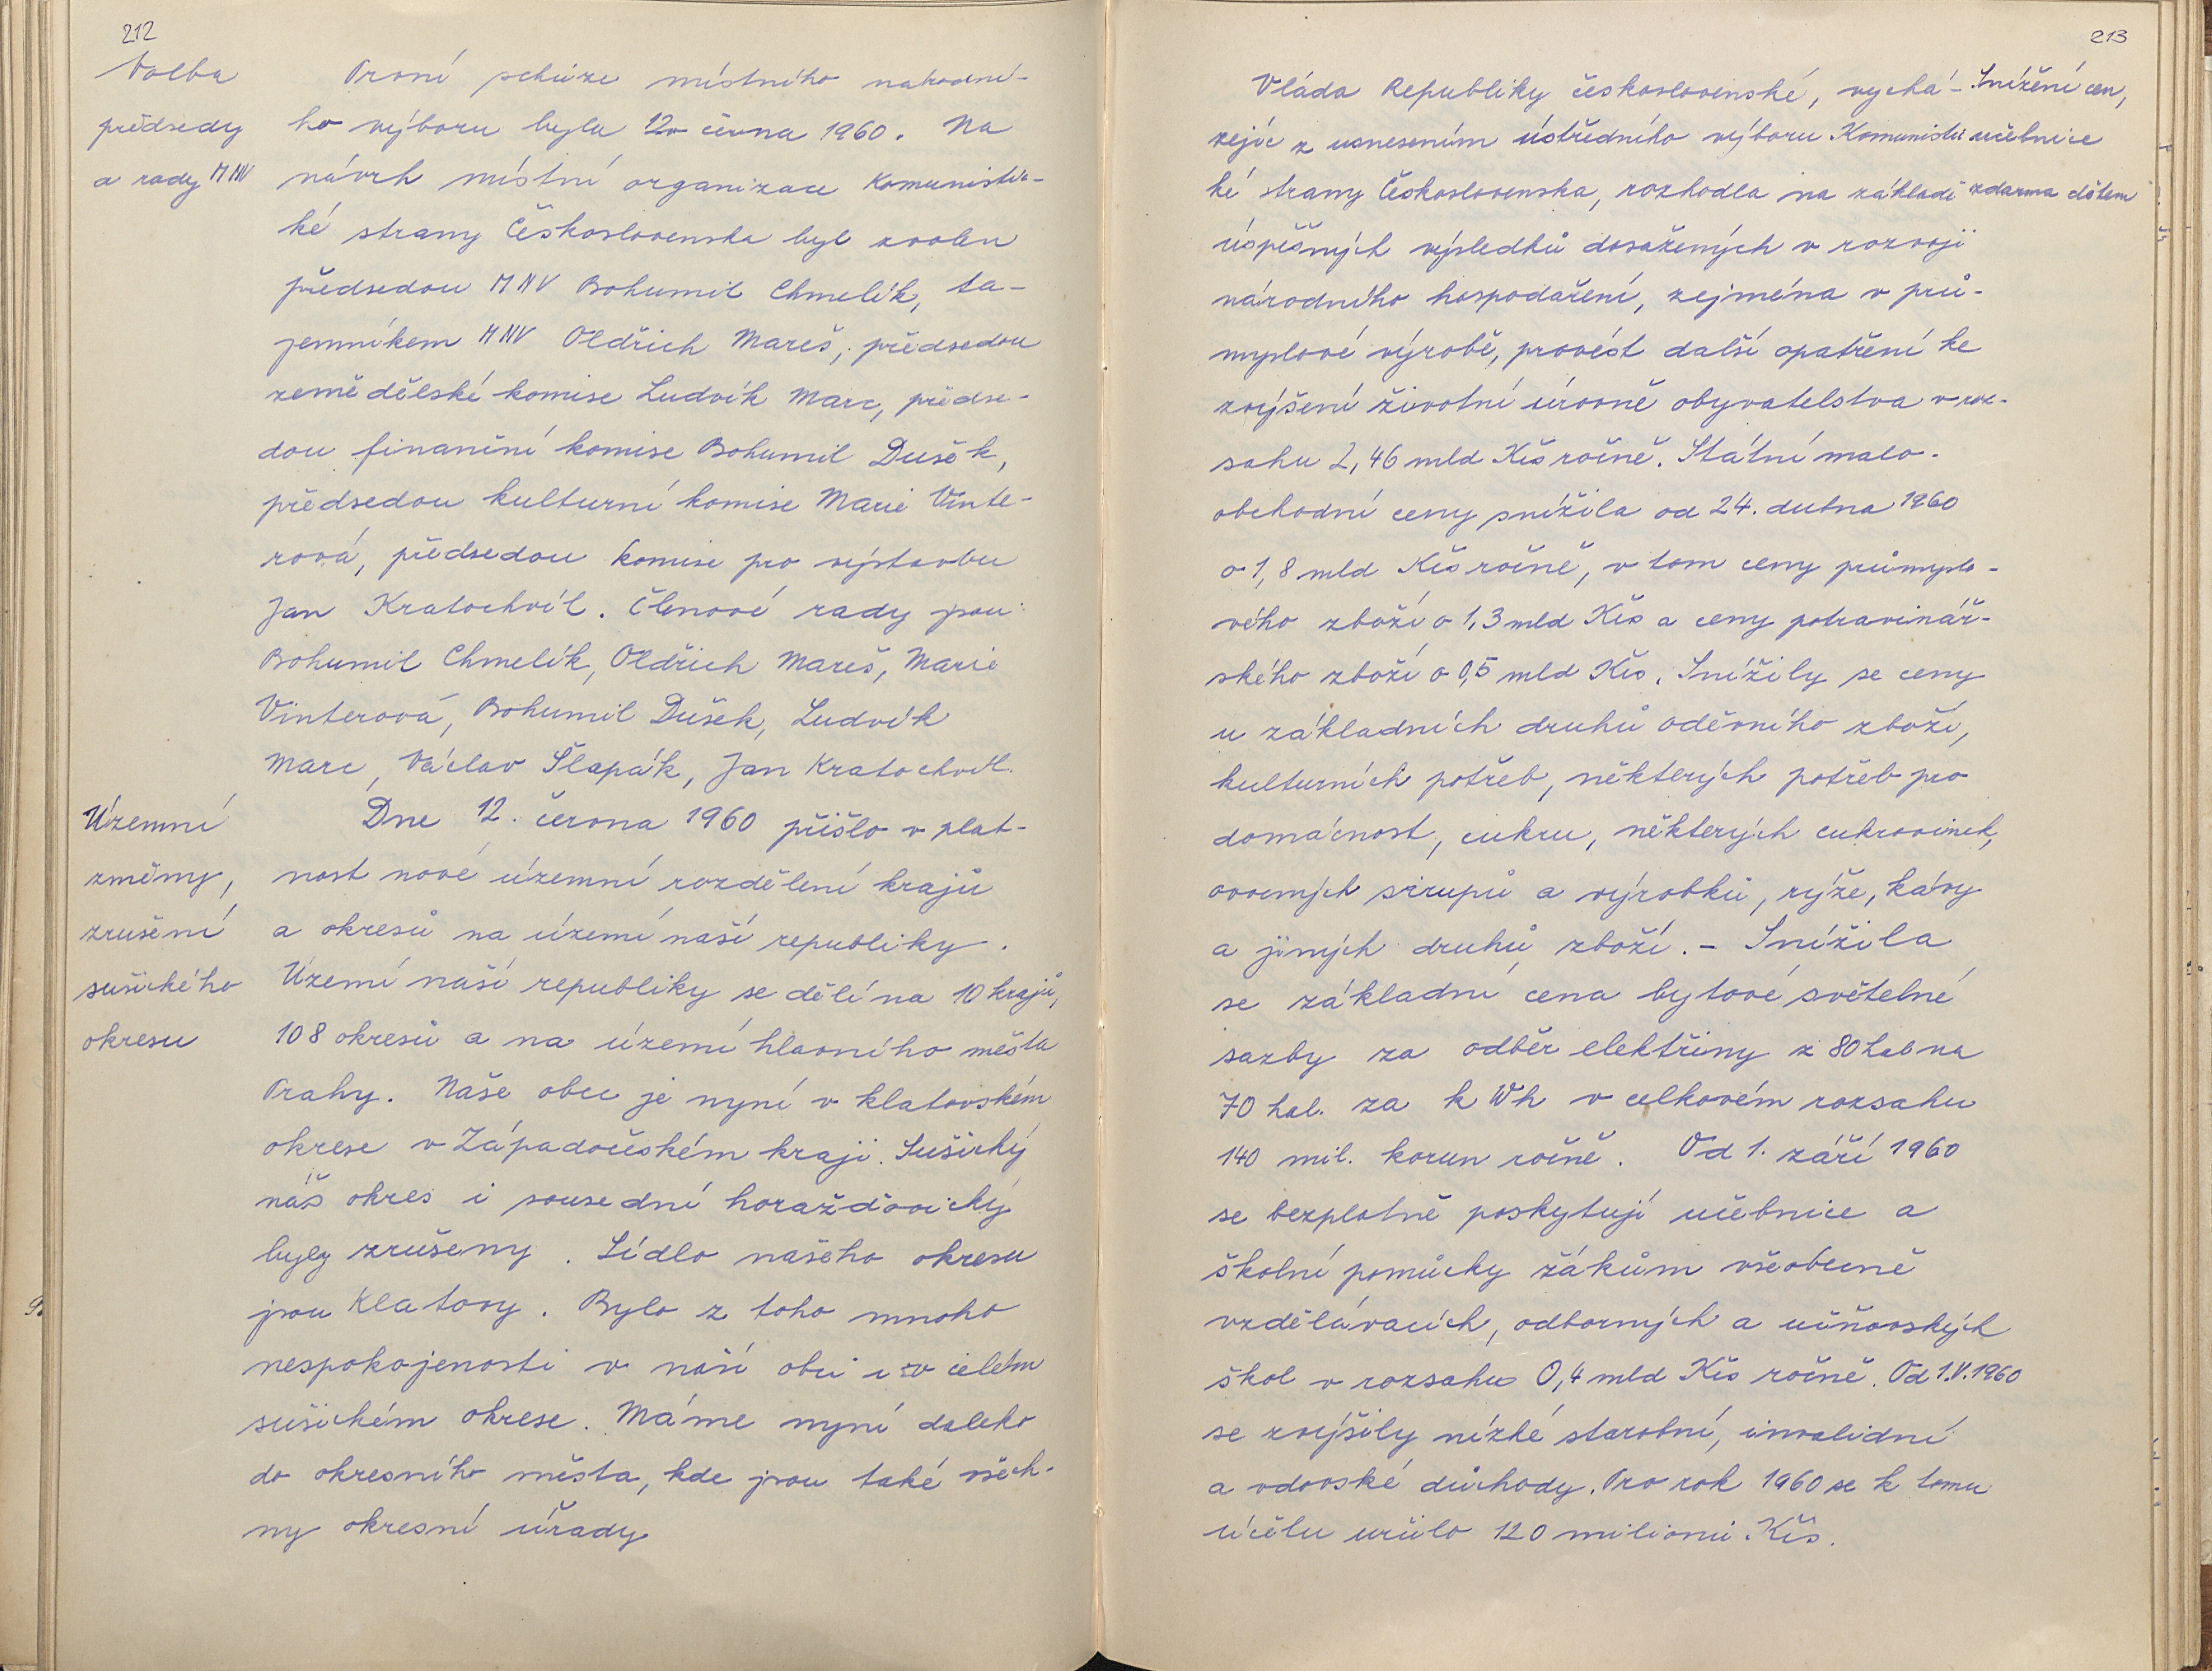 212
Volba
předsedy
a rady MNV
První schůze místního národní-
ho výboru byla 12. června 1960. Na
návrh místní organizace Komunistic-
ké strany Československa byl zvolen
předsedou MNV Bohumil Chmelík, ta-
jemníkem MNV Oldřich Mareš, předsedou
zemědělské komise Ludvík Marc, předse-
dou finanční komise Bohumil Dušek,
předsedou kulturní komise Marie Vinte-
rová, předsedou komise pro výstavbu
Jan Kratochvíl. Členové rady jsou:
Bohumil Chmelík, Oldřich Mareš, Marie
Vinterová, Bohumil Dušek, Ludvík
Marc, Václav Šlapák, Jan Kratochvíl.
Územní
změny,
zrušení
sušického
okresu
Dne 12. června 1960 přišlo v plat-
nost nové územní rozdělení krajů
a okresů na území naší republiky.
Území naší republiky se dělí na 10 krajů,
108 okresů a na území hlavního města
Prahy. Naše obec je nyní v klatovském
okrese v Západočeském kraji. Sušický
náš okres i sousední horažďovický
byly zrušeny. Sídlo našeho okresu
jsou Klatovy. Bylo z toho mnoho
nespokojenosti v naší obci i v celém
sušickém okrese. Máme nyní daleko
do okresního města, kde jsou také všech-
ny okresní úřady
213
Snížení cen,
učebnice
zdarma dětem
Vláda Republiky československé, vychá-
zejíc z usnesením ústředního výboru Komunistic
ké strany Československa, rozhodla na základě
úspěšných výsledků dosažených v rozvoji
národního hospodaření, zejména v prů-
myslové výrobě, provést další opatření ke
zvýšení životní úrovně obyvatelstva v roz-
sahu 2,46 mld Kčs ročně. Státní malo-
obchodní ceny snížila od 24. dubna 1960
o 1,8 mld Kčs ročně, v tom ceny průmyslo-
vého zboží o 1,3 mld Kčs a ceny potravinář-
ského zboží o 0,5 mld Kčs. Snížily se ceny
u základních druhů oděvního zboží,
kulturních potřeb, některých potřeb pro
domácnost, cukru, některých cukrovinek,
ovocných sirupů a výrobků, rýže, kávy
a jiných druhů zboží. - Snížila
se základní cena bytové světelné
sazby za odběr elektřiny z 80 hal na
70 hal. za k Wh v celkovém rozsahu
140 mil. korun ročně. Od 1. září 1960
se bezplatně poskytují učebnice a
školní pomůcky žákům všeobecně
vzdělávacích, odborných a učňovských
škol v rozsahu 0,4 mld Kčs ročně. Od 1.V.1960
se zvýšily nízké starobní, invalidní
a vdovské důchody. Pro rok 1960 se k tomu
účelu určilo 120 milionů Kčs.